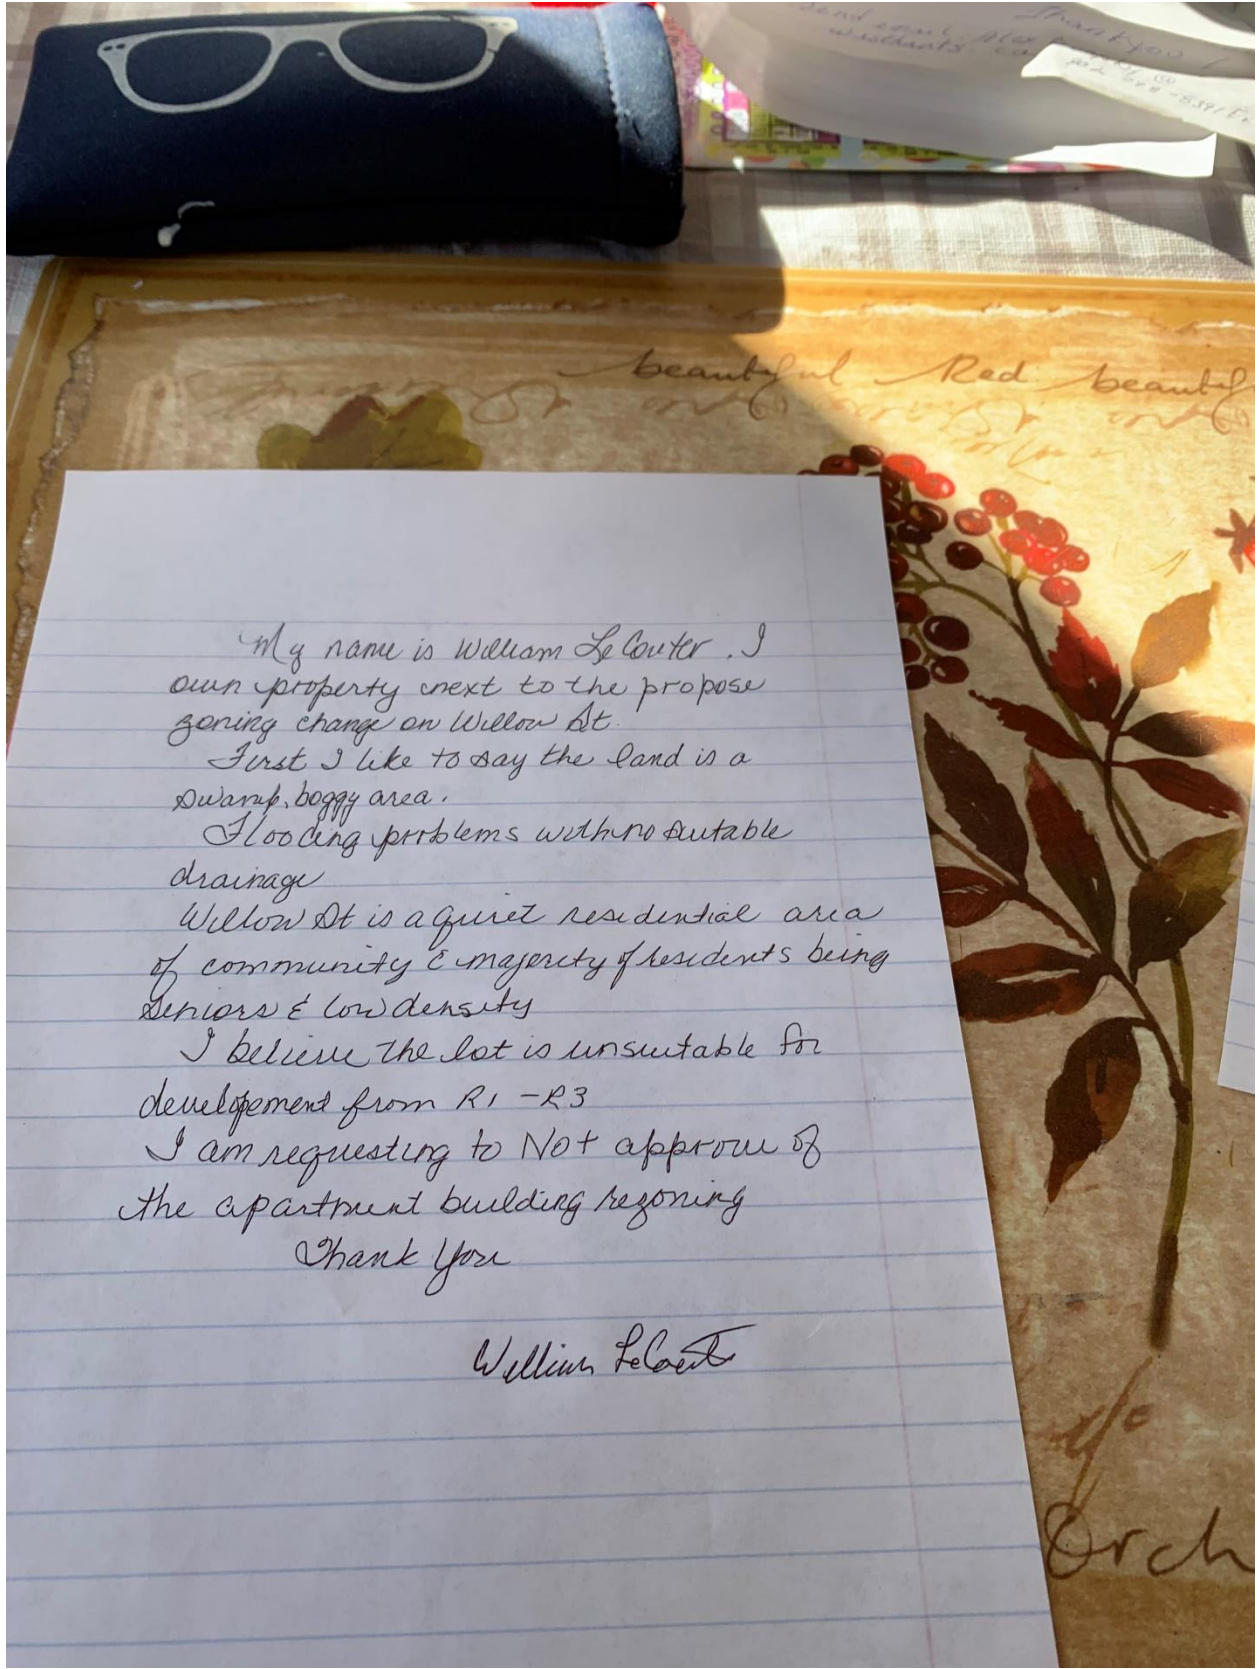 Thank you
send
beautiful Red beautiful
My name is William LeCouter. I
own property next to the propose
zoning change on Willow St.
First I like to say the land is a
swamp, boggy area.
Flooding problems with no suitable
drainage
Willow St is a quiet residential area
of community & majority of residents being
seniors & low density
I believe the lot is unsuitable for
developement from R1 - R3
I am requesting to Not approve of
the apartment building rezoning
Thank You
William LeCouter
Orch